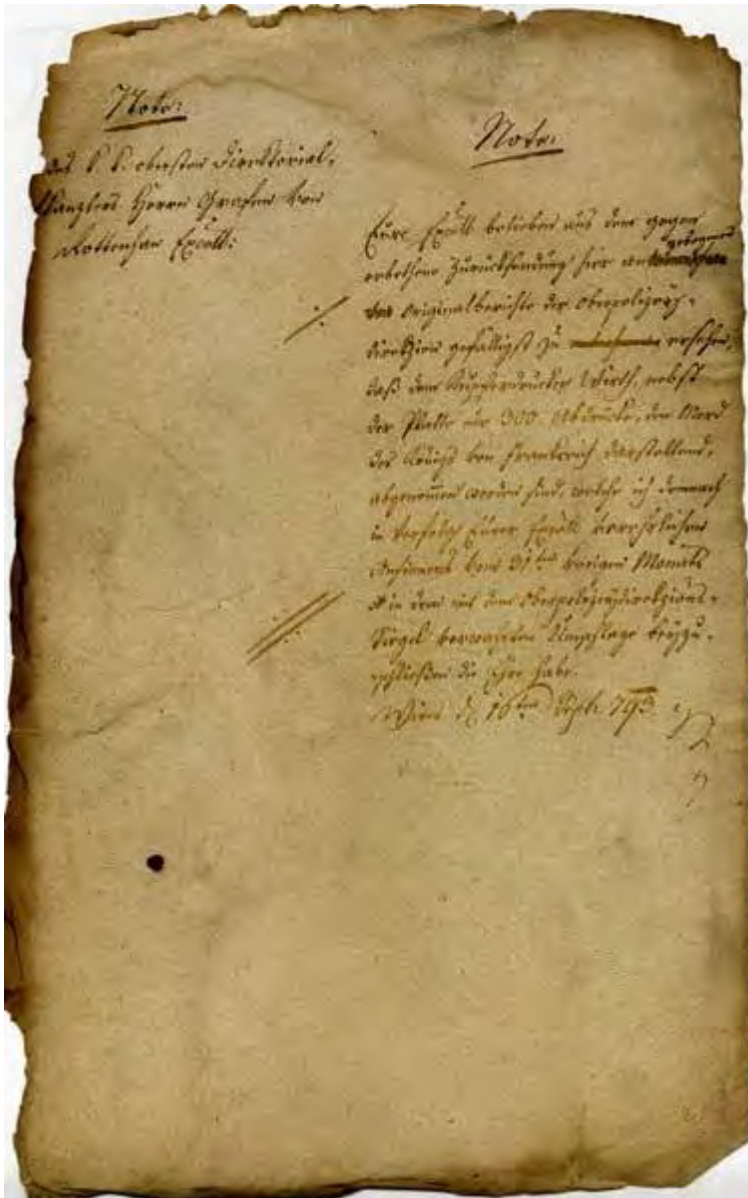 Nota:
des k. k. obersten Direktorial-
kanzlers Herrn Grafen von
Rottenhan Exzell:
Nota.
Eure Exzell. belieben aus dem gegen
gebogenen
erbethene Zurücksendung hier
Originalberichte der Oberpolizey-
direkzion gefälligst zu ersehen,
daß dem Kupferdrucker Wirth, nebst
der Platte nur 300 Abdrücke, den Mord
des Königs von Frankreich darstellend,
abgenommen worden sind, welche ich demnach
in Verfolg Eurer Exzell. verehrlichen
Ansinnens vom 31ten vorigen Monats
in dem mit dem Oberpolizeydirekzions-
Siegel verwahrten Umschlage beyzu-
schließen die Ehre habe.
Wien d. 16ten Septb. 793.